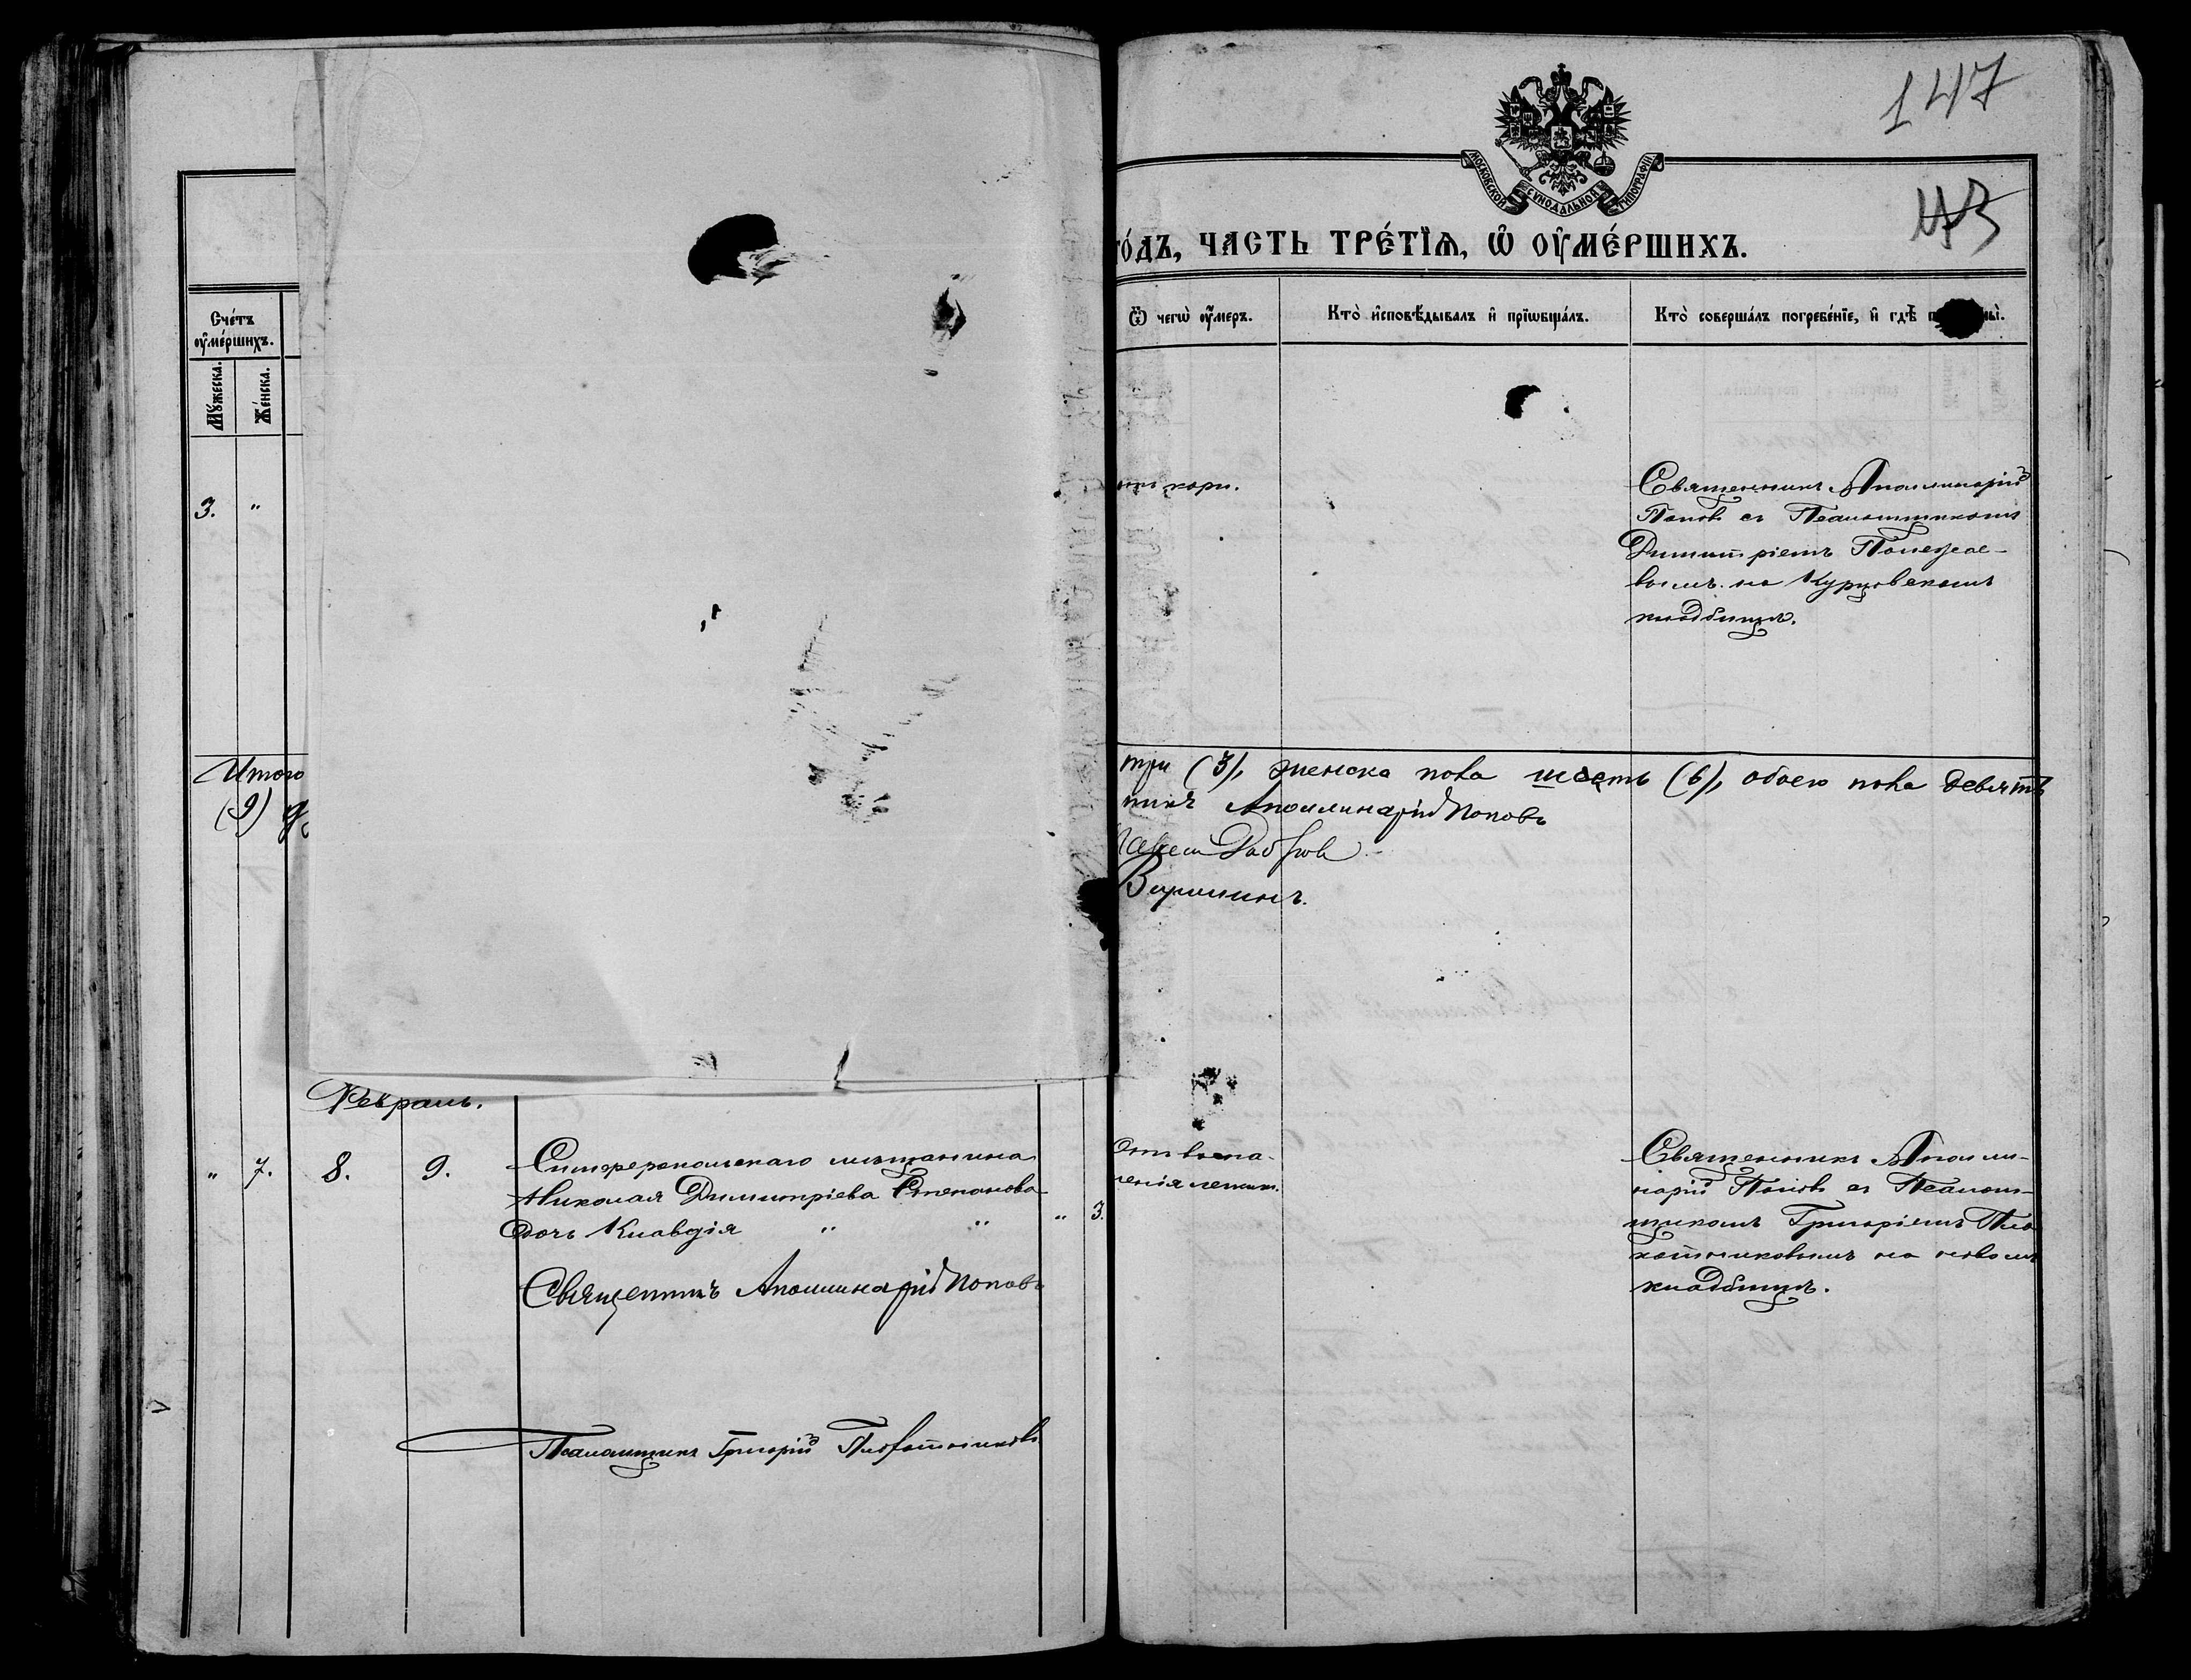 147
МОСКОВСКОЙ СѴНОДАЛЬНОЙ ТИПОГРАФІИ
143
го́дъ, ЧАСТЬ ТРЕ́ТЇѦ, Ѡ ОУ҆МЕ́РШИХЪ.
Сче́тъ оу҆ме́ршихъ.
Мꙋ́жеска.
Же́нска.
Ѿ чегѡ̀ оу҆́меръ.
Кто̀ и҆сповѣ́дывалъ и҆ прїѡбща́лъ.
Кто̀ соверша́лъ погребе́нїе, и҆ гдѣ̀
3. "
кори.
Священникъ Аполлинарій
Поповъ съ Псаломщикомъ
Димитріемъ Полежае-
вымъ на Курцовскомъ
кладбищѣ.
Итого
(9)
три (3), женска пола шесть (6), обоего пола девять
никъ Аполлинарій Поповъ
Февраль.
" 7. 8. 9.
Симферопольскаго мѣщанина
Николая Димитріева Степанова
дочь Клавдія " "
" 3.
Отъ воспа-
ленія легкихъ.
Священникъ Аполли-
нарій Поповъ съ Псалом-
щикомъ Григоріемъ Пло-
хотниковымъ на новомъ
кладбищѣ.
Священникъ Аполлинарій Поповъ
Псаломщикъ Григорій Плохотниковъ